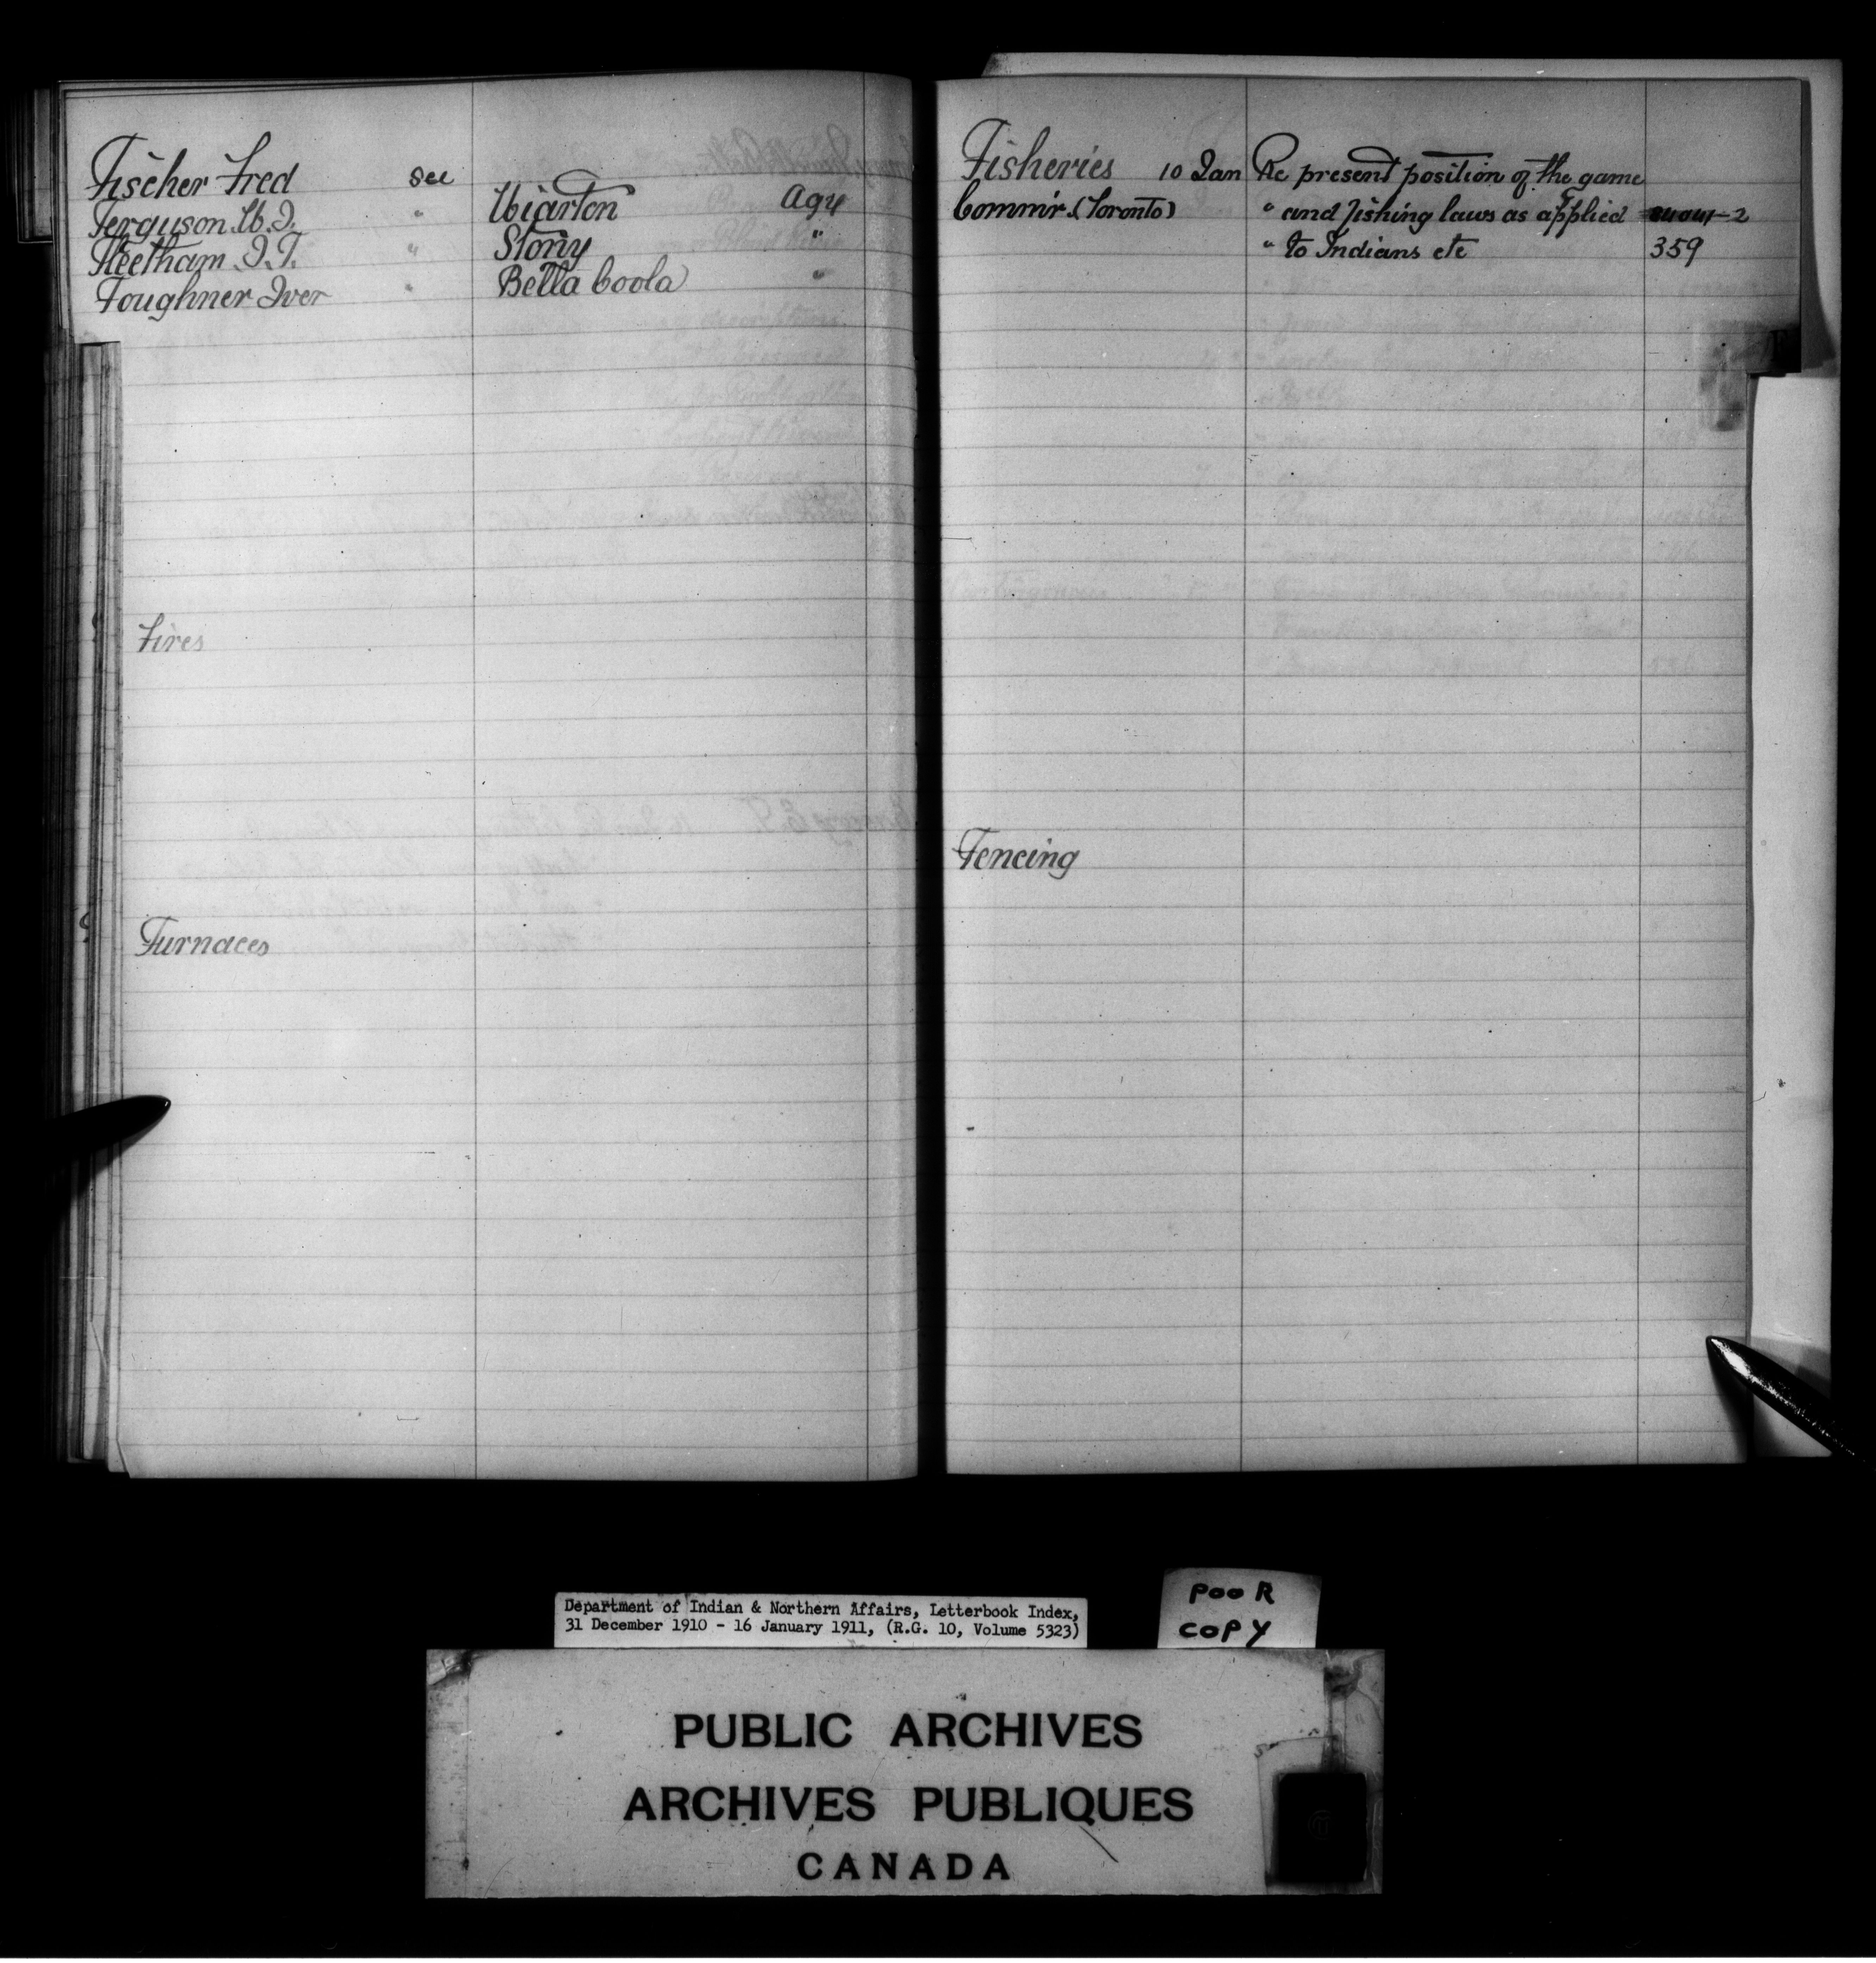 Fischer Fred see
Ferguson W. J. " Wiarton Agy
Fleetham J. T. " Stony "
Foughner Iver " Bella Coola "
Fires
Furnaces
Fisheries 10 Jan Re present position of the game
Commr. (Toronto) " and fishing laws as applied
" to Indians etc 359
Fencing
Department of Indian & Northern Affairs, Letterbook Index,
31 December 1910 - 16 January 1911, (R.G. 10, Volume 5323)
POOR
COPY
PUBLIC ARCHIVES
ARCHIVES PUBLIQUES
CANADA